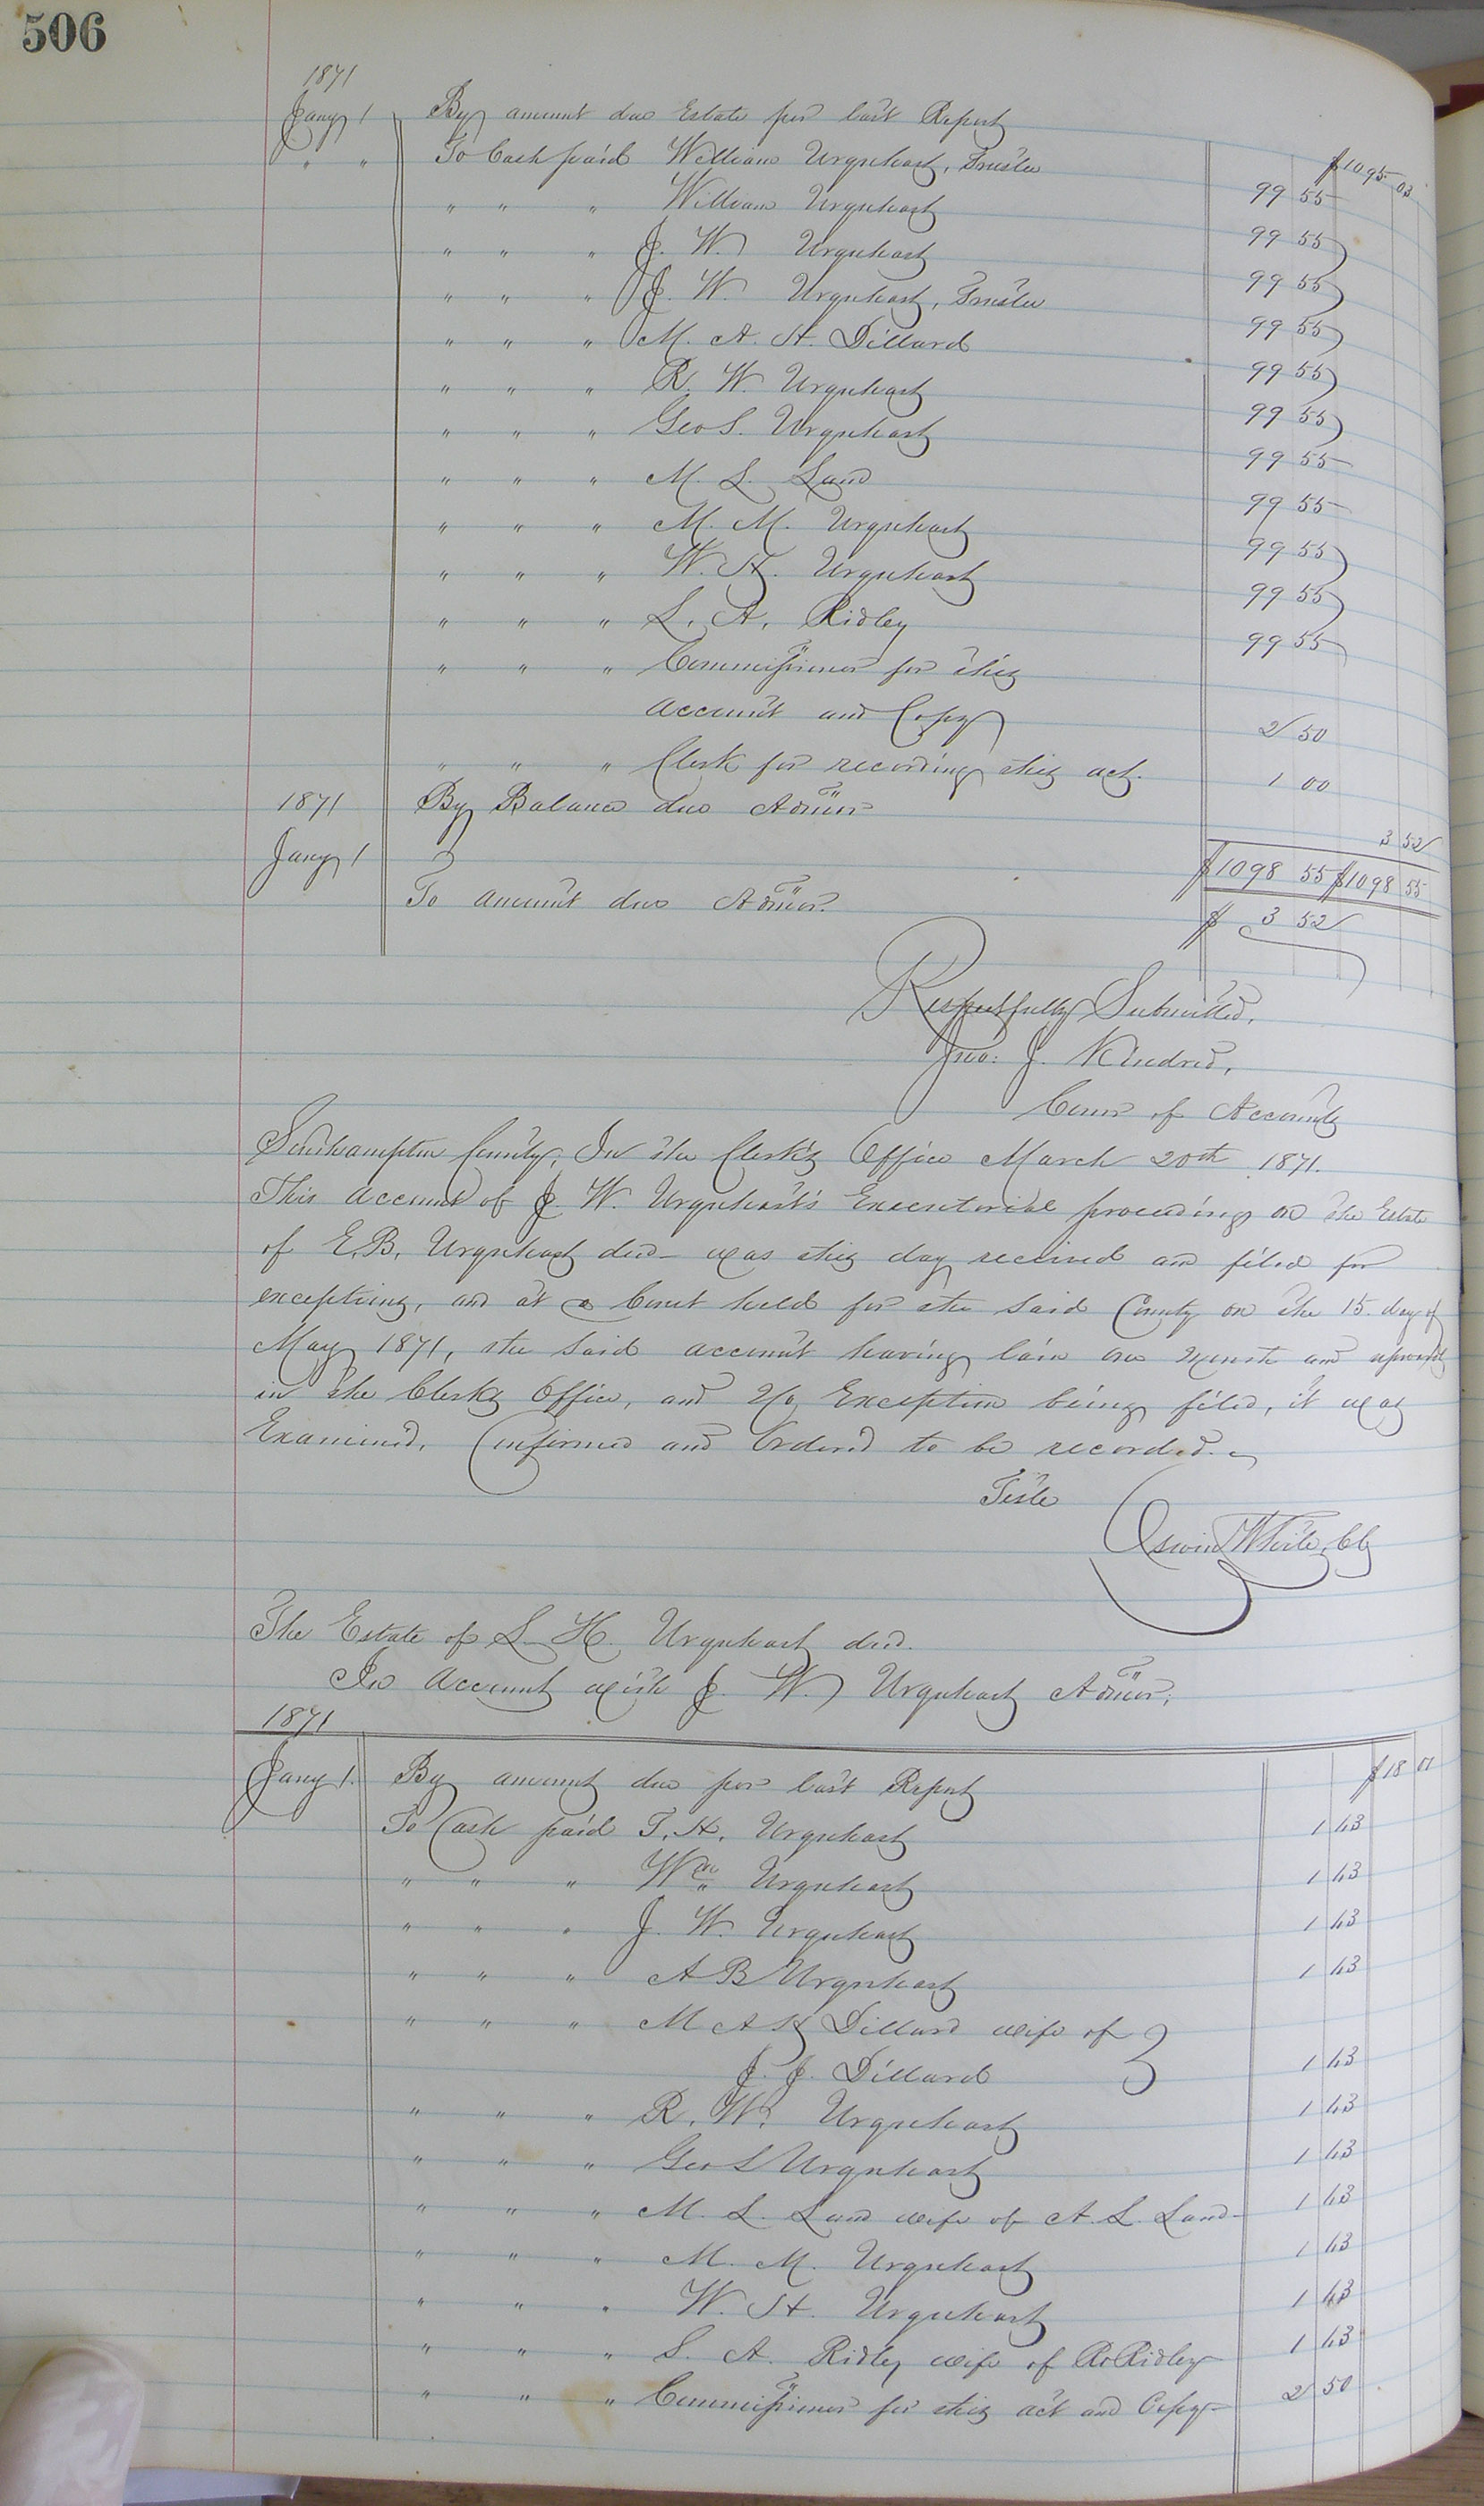 506
1871
Jany 1 By amount due Estate per last Report $1095 03
" " To Cash paid William Urquhart, Trustee 99 55
" " " William Urquhart 99 55
" " " J. W. Urquhart 99 55
" " " J. W. Urquhart, Trustee 99 55
" " " M. A. H. Dillard 99 55
" " " R. W. Urquhart 99 55
" " " Geo S. Urquhart 99 55
" " " M. L. Land 99 55
" " " M. M. Urquhart 99 55
" " " W. H. Urquhart 99 55
" " " L. A. Ridley 99 55
" " " Commissioner for this
account and Copy 2 50
" " " Clerk for recording this act. 1 00
1871 By Balance due Admor 3 52
$1098 55 $1098 55
Jany 1 To amount due Admor. $ 3 52
Respectfully Submitted,
Jno: J. Kindred,
Comr of Accounts
Southampton County, In the Clerk's Office March 20th 1871.
This account of J. W. Urquhart's Executorial proceedings on the Estate
of E. B. Urquhart decd was this day received and filed for
exceptions, and at a Court held for the said County on the 15 day of
May 1871, the said account having lain one month and upwards
in the Clerks Office, and No Exception being filed, it was
Examined, Confirmed and Ordered to be recorded.
Teste
White, Clk
The Estate of L. H. Urquhart decd.
In account with J. W. Urquhart Admor,
1871
Jany 1. By amount due per last Report $18 01
To Cash paid T. H. Urquhart 1 43
" " " Wm Urquhart 1 43
" " " J. W. Urquhart 1 43
" " " A B Urquhart 1 43
" " " M A H Dillard wife of
J. J. Dillard 1 43
" " " R. W. Urquhart 1 43
" " " Geo S Urquhart 1 43
" " " M. L. Land wife of A. L. Land 1 43
" " " M. M. Urquhart 1 43
" " " W. H. Urquhart 1 43
" " " L. A. Ridley wife of Ro Ridley 1 43
" " " Commissioner for this act and Copy 2 50